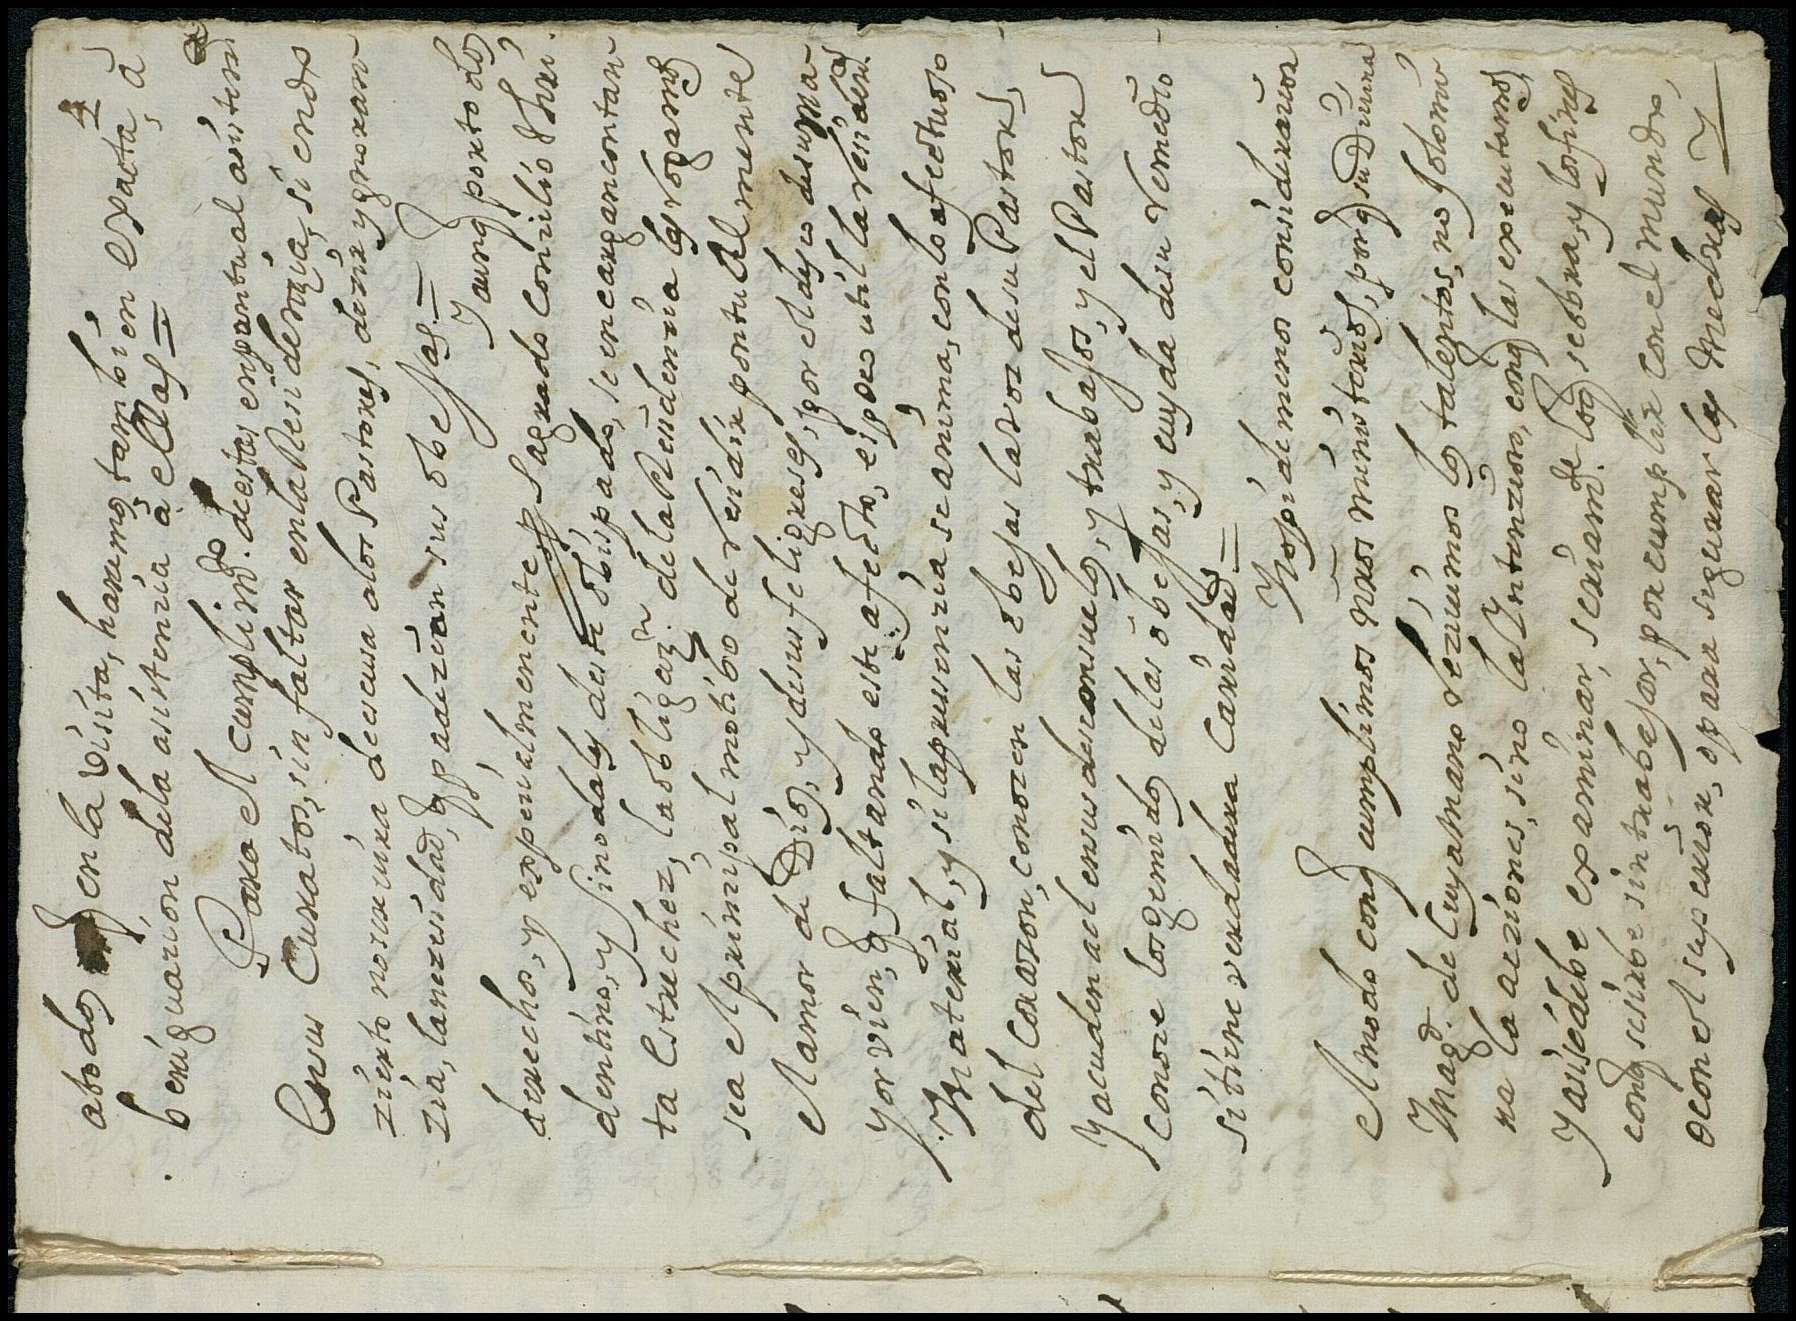 4
atodos q en la Visita, haremos tambien exacta, a
beriguacion dela asistencia a ellas =
Para el cumplimto. desta, enpuntual asisten
En sus Curatos, sin faltar en la Residencia, siendo
zierto no escusa alos Pastores, dezir ygnoran
zia, la nezesidad, q padezcan sus obejas. =
Y aunq por todo
derecho, y espezialmente Sagrado Conzilio Tri
dentino, y sinodales deste obispado, se encarga con tan
ta Estrechez, la obligazn. dela Residencia les rogamos
sea el prinzipal motibo de residir puntualmente
el amor de Dios, y de sus feligreses, por el de su ma
yor vien, q faltando este afecto, es poco util la residencia
Material, y si la presencia se anima, con lo afectuoso
del Corazon, conozen las obejas la voz de su Pastor,
Y acuden a el en sus desconsuelos, y trabajos, y el Pastor
conoze los gemidos delas obejas, y cuyda de su remedio
si tiene verdadera Caridad =
No pide menos consideracion
el modo con q cumplimos nros ministerios, porq su Diuina
Magd. de Cuya mano rezeuimos los talentos, no solo mi
ra la acziones, sino la Yntenzion, con q las executamos,
y asi se debe examinar, seriamte. lo q se obra, y los fines
con q se sirbe sin trabajar, por cumplir con el mundo,
o con el superior, o para segurar los Medras Y